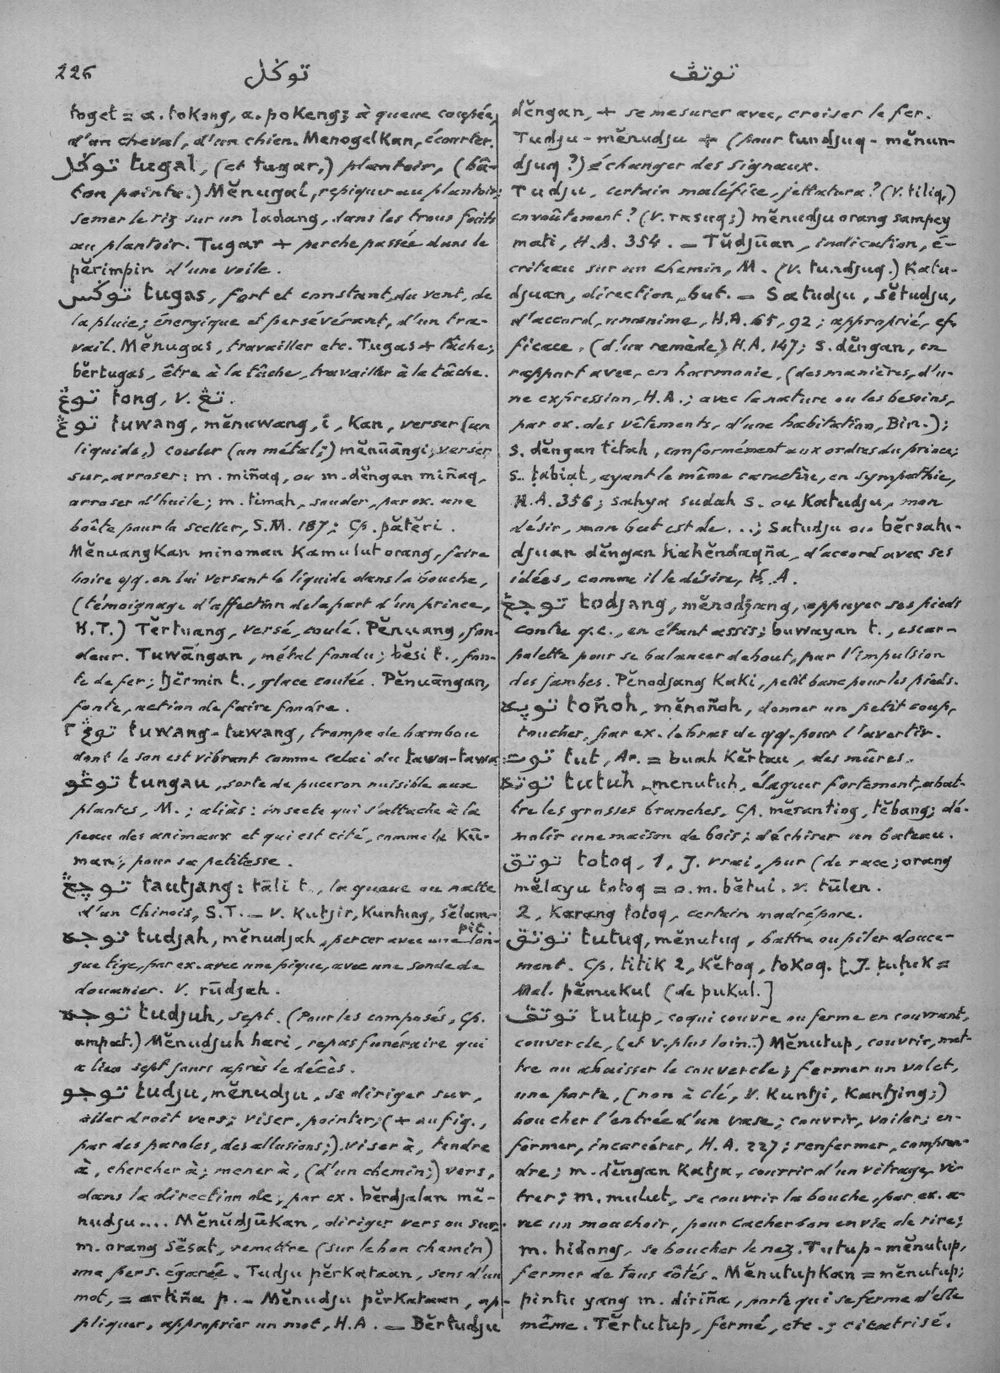 226
توݢل
توتڤ
toget = a. tokong, a. pokeng; à queue coupée,
d'un cheval, d'un chien. Menogelkan, écourter.
توݢل tugal, (et tugar,) plantoir, (bâ-
ton pointu.) Mĕnugal, repiquer au plantoir;
semer le riz sur un ladang, dans les trous faits
au plantoir. Tugar + perche passée dans le
pĕrimpin d'une voile.
توݢس tugas, fort et constant, du vent, de
la pluie; énergique et persévérant, d'un tra-
vail. Mĕnugas, travailler etc. Tugas + tâche;
bĕrtugas, être à la tâche, travailler à la tâche.
توڠ tong, v. تڠ.
توڠ tuwang, mĕnuwang, i, kan, verser (un
liquide,) couler (un métal;) mĕnūāngi, verser
sur, arroser: m. miñaq, ou m. dĕngan miñaq,
arroser d'huile; m. timah, souder, par ex. une
boîte pour la sceller, S.M. 187; Cp. pătĕri.
Mĕnuangkan minoman kamulut orang, faire
boire qq. en lui versant le liquide dans la bouche,
(témoignage d'affection de la part d'un prince,
H.T.) Tĕrtuang, versé, coulé. Pĕnuang, fon-
deur. Tuwāngan, métal fondu; bĕsi t., fon-
te de fer; ḥĕrmin t., glace coulée. Pĕnuāngan,
fonte, action de faire fondre.
توڠ٢ tuwang-tuwang, trompe de bambou
dont le son est vibrant comme celui du tawa-tawa.
توڠو tungau, sorte de puceron nuisible aux
plantes, M.; aliàs: insecte qui s'attache à la
peau des animaux et qui est cité, comme le Kū-
man, pour sa petitesse.
توچڠ tautjang: tāli t., la queue ou natte
d'un Chinois, S.T. — v. Kutjir, Kuntung, sĕlam-
pit.
توجه tudjah, mĕnudjah, percer avec une lon-
gue tige, par ex. avec une pique, avec une sonde de
douanier. V. rūdjah.
توجه tudjuh, sept. (Pour les composés, Cp.
ampat.) Mĕnudjuh hari, repas funéraire qui
a lieu sept jours après le décès.
توجو tudju, mĕnudju, se diriger sur,
aller droit vers; viser, pointer; (+ au fig.,
par des paroles, des allusions;) viser à, tendre
à, chercher à; mener à, (d'un chemin;) vers,
dans la direction de; par ex. bĕrdjalan mĕ-
nudju.... Mĕnŭdjūkan, diriger vers ou sur;
m. orang sĕsat, remettre (sur le bon chemin)
une pers. égarée. Tudju pĕrkataan, sens d'un
mot, = artiña p. — Mĕnudju pĕrkataan, ap-
pliquer, approprier un mot, H.A. — Bĕrtudju
dĕngan, + se mesurer avec, croiser le fer.
Tudju-mĕnudju + (pour tundjuq-mĕnun-
djuq?) échanger des signaux.
Tudju, certain maléfice, jettatura? (v. tiliq,)
envoûtement? (v. rasuq;) mĕnudju orang sampey
mati, H.A. 354. — Tŭdjūan, indication, é-
criteau sur un chemin, M. (v. tundjuq.) Katu-
djuan, direction, but. — Satudju, sĕtudju,
d'accord, unanime, H.A. 65, 92; approprié, ef-
ficace, (d'un remède,) H.A. 147; s. dĕngan, en
rapport avec, en harmonie, (des manières, d'u-
ne expression, H.A.; avec la nature ou les besoins,
par ex. des vêtements, d'une habitation, Bin.);
s. dĕngan titah, conformément aux ordres du prince;
s. ṭabiat, ayant le même caractère, en sympathie,
H.A. 356; sahya sudah s. ou katudju, mon
désir, mon but est de ...; Satudju ou bĕrsatu-
djuan dĕngan kahĕndaqña, d'accord avec ses
idées, comme il le désire, H.A.
توجڠ todjang, mĕnodjang, appuyer ses pieds
contre q.c., en étant assis; buwayan t., escar-
polette pour se balancer debout, par l'impulsion
des jambes. Pĕnodjang kaki, petit banc pour les pieds.
توڽه toñoh, mĕnoñoh, donner un petit coup,
toucher, par ex. le bras de qq. pour l'avertir.
توت tut, Ar. = buah kĕrtau, des mûres.
توته tutuh, menutuh, élaguer fortement, abat-
tre les grosses branches. Cp. mĕsantiog, tĕbang; dé-
molir une maison de bois; déchirer un bateau.
توتق totoq, 1, J. vrai, pur (de race; orang
mĕlayu totoq = o.m. bĕtul. v. tūlen.
2, karang totoq, certain madrépore.
توتق tutuq, mĕnutuq, battre ou piler douce-
ment. Cp. titik 2, kĕtoq, tokoq. [J. ṭuṭuk =
Mal. pĕmukul (de pukul.]
توتڤ tutup, ce qui couvre ou ferme en couvrant,
couvercle, (et v. plus loin..) Mĕnutup, couvrir, met-
tre ou abaisser le couvercle; fermer un volet,
une porte, (non à clé, V. Kuntji, Kantjing;)
boucher l'entrée d'un vase; couvrir, voiler; en-
fermer, incarcérer, H.A. 227; renfermer, compren-
dre; m. dĕngan katja, couvrir d'un vitrage, vi-
trer; m. mulut, se couvrir la bouche, par ex. a-
vec un mouchoir, pour cacher son envie de rire;
m. hidong, se boucher le nez. Tutup-mĕnutup,
fermer de tous côtés. Mĕnutupkan = mĕnutup;
pintu yang m. diriña, porte qui se ferme d'elle
même. Tĕrtutup, fermé, etc.; cicatrisé.